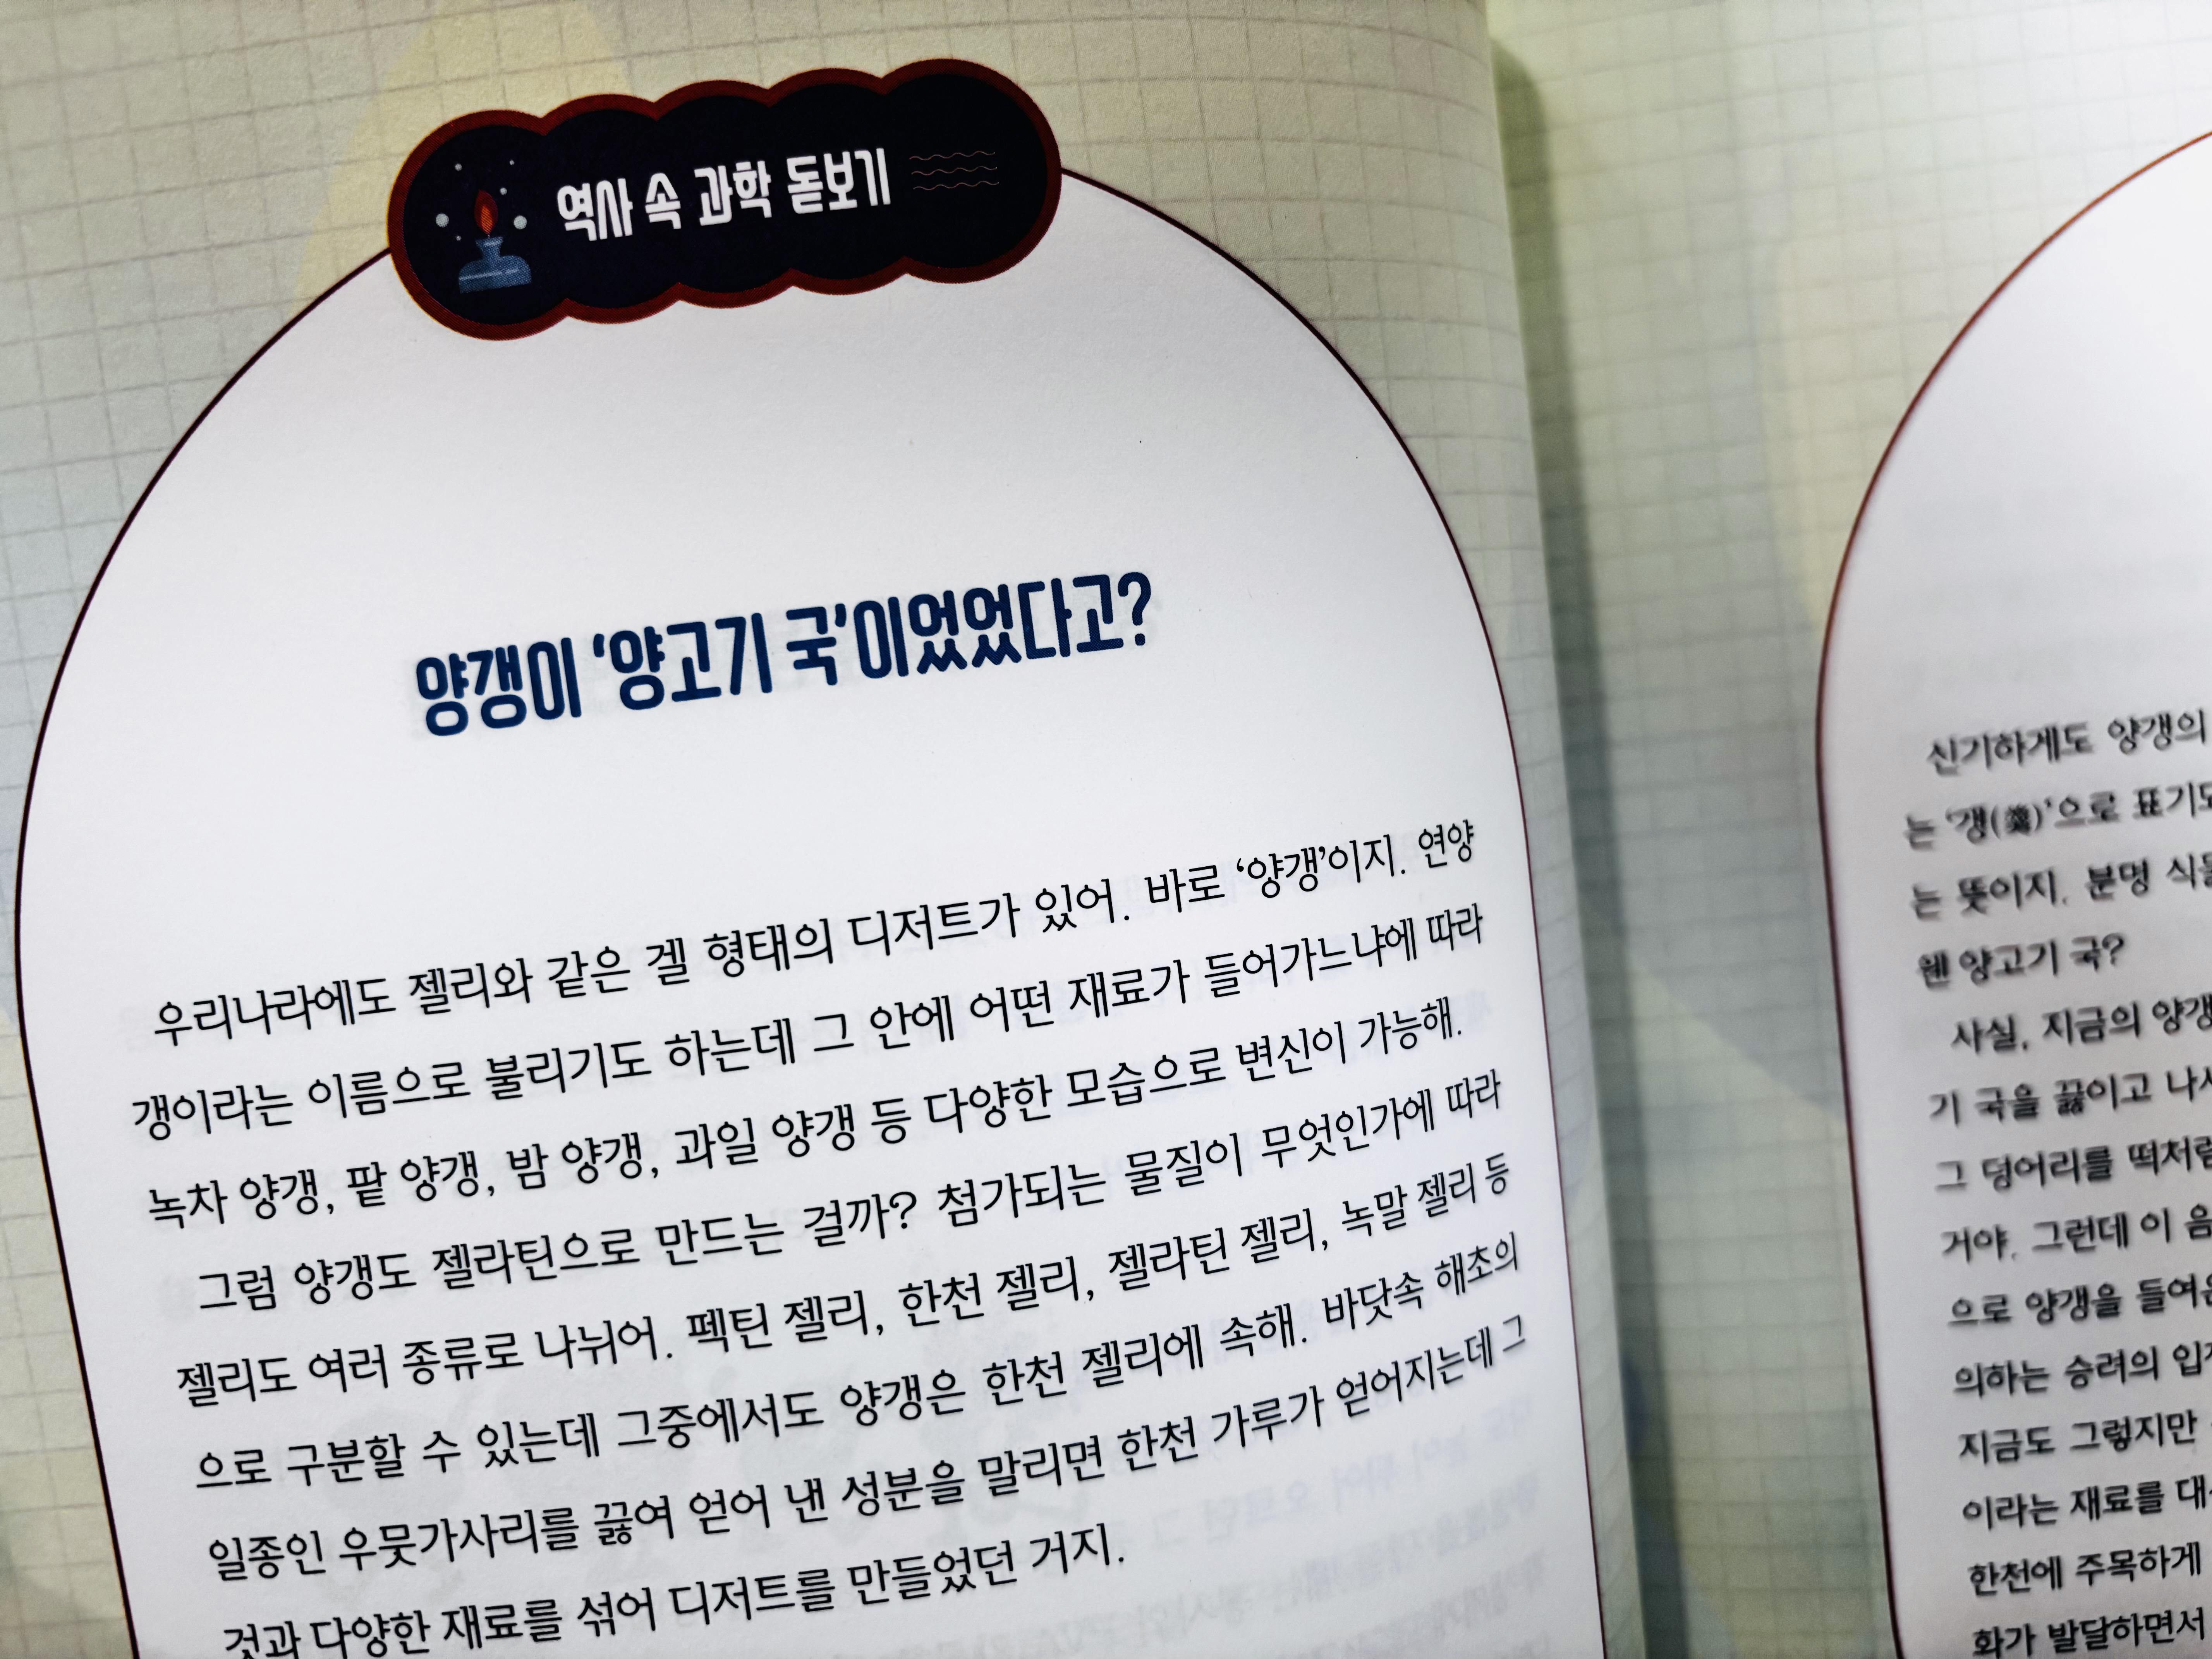 역사 속 과학 돋보기
양갱이 ‘양고기 국’이었었다고?
우리나라에도 젤리와 같은 겔 형태의 디저트가 있어. 바로 ‘양갱’이지. 연양
갱이라는 이름으로 불리기도 하는데 그 안에 어떤 재료가 들어가느냐에 따라
녹차 양갱, 팥 양갱, 밤 양갱, 과일 양갱 등 다양한 모습으로 변신이 가능해.
그럼 양갱도 젤라틴으로 만드는 걸까? 첨가되는 물질이 무엇인가에 따라
젤리도 여러 종류로 나뉘어. 펙틴 젤리, 한천 젤리, 젤라틴 젤리, 녹말 젤리 등
으로 구분할 수 있는데 그중에서도 양갱은 한천 젤리에 속해. 바닷속 해초의
일종인 우뭇가사리를 끓여 얻어 낸 성분을 말리면 한천 가루가 얻어지는데 그
것과 다양한 재료를 섞어 디저트를 만들었던 거지.
신기하게도 양갱의
는 ‘갱(羹)’으로 표기되
는 뜻이지. 분명 식물
웬 양고기 국?
사실, 지금의 양갱
기 국을 끓이고 나서
그 덩어리를 떡처럼
거야. 그런데 이 음
으로 양갱을 들여온
의하는 승려의 입
지금도 그렇지만
이라는 재료를 대
한천에 주목하게
화가 발달하면서